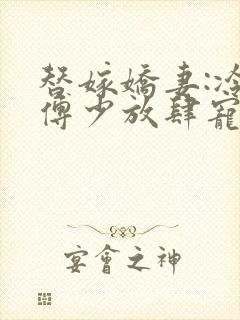 替嫁嬌妻:冷
傅少放肆寵
宴會之神